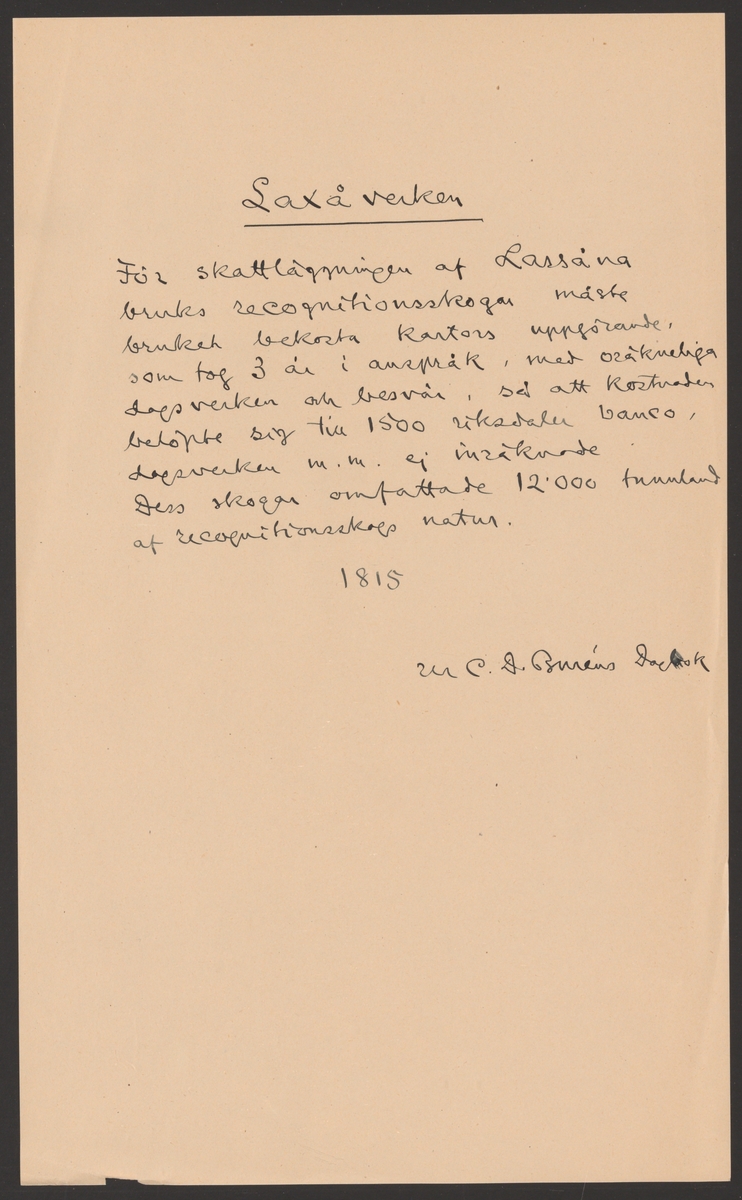 Laxå verken
För skattläggningen af Lassåna
bruks recognitionsskogar måste
bruket bekosta kartors uppgörande,
som tog 3 år i anspråk, med oräkneliga
dagsverken och besvär, så att kostnaden
belöpte sig till 1500 riksdaler banco,
dagsverken m.m. ej inräknade
Dess skogar omfattade 12'000 tunnland
af recognitionsskogs natur.
1815
ur C. D. Buréns Dagbok